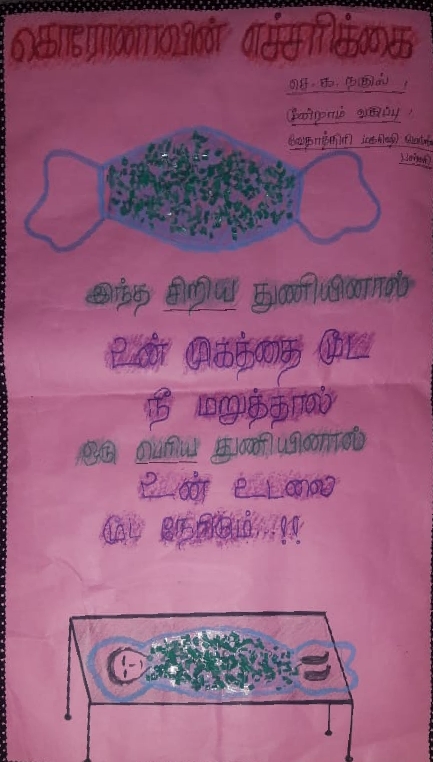 கொரோனாவின் எச்சரிக்கை
செ.க. நகுல் ,
மூன்றாம் வகுப்பு ,
வேதாத்திரி மகரிஷி
பள்ளி
இந்த சிறிய துணியினால்
உன் முகத்தை மூட
நீ மறுத்தால்
ஒரு பெரிய துணியினால்
உன் உடலை
மூட நேரிடும்..!!